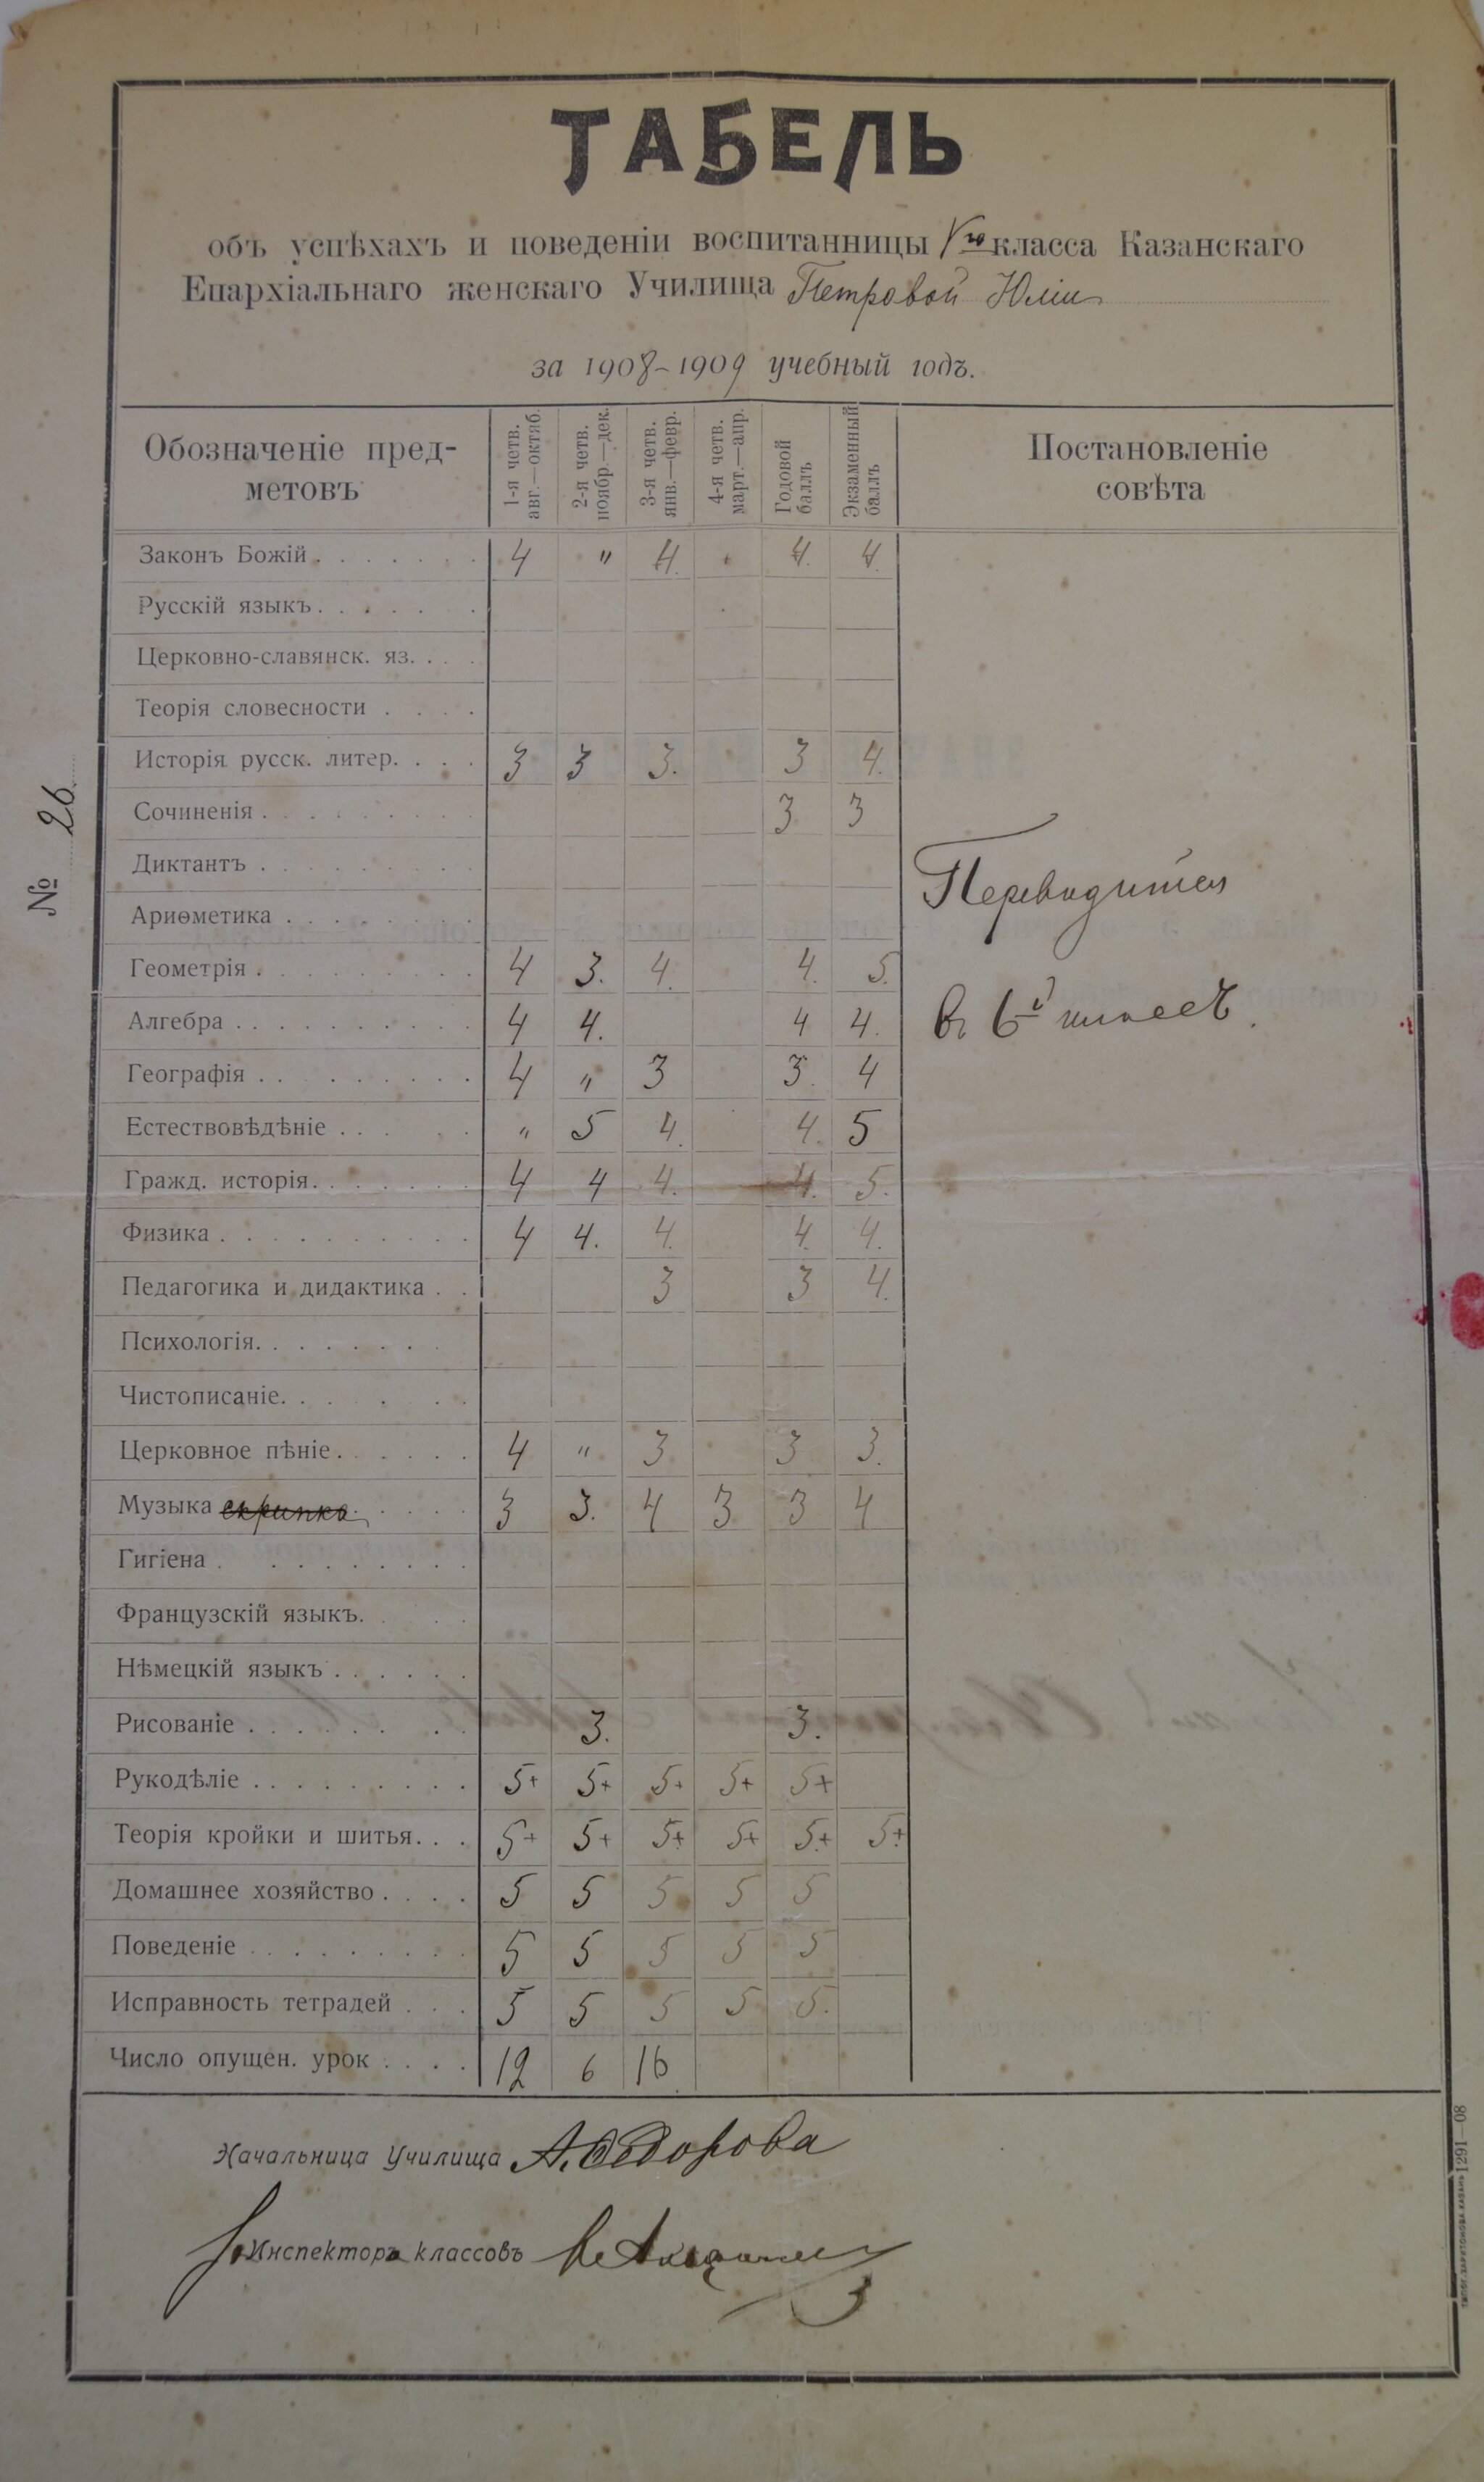 ТАБЕЛЬ
объ успѣхахъ и поведеніи воспитанницы Vго класса Казанскаго
Епархіальнаго женскаго Училища Петровой Юліи
за 1908-1909 учебный годъ.
№ 26
Обозначеніе пред-
метовъ
1-я четв.
авг.—октяб.
2-я четв.
ноябр.—дек.
3-я четв.
янв.—февр.
4-я четв.
март.—апр.
Годовой
баллъ
Экзаменный
баллъ
Постановленіе
совѣта
Законъ Божій 4 " 4. 4. 4.
Русскій языкъ
Церковно-славянск. яз.
Теорія словесности
Исторія русск. литер. 3 3 3. 3 4.
Сочиненія 3 3
Диктантъ
Ариѳметика
Геометрія 4 3. 4. 4. 5.
Алгебра 4 4. 4 4.
Географія 4 " 3 3. 4
Естествовѣдѣніе " 5 4. 4. 5
Гражд. исторія 4 4 4. 4. 5.
Физика 4 4. 4. 4. 4.
Педагогика и дидактика 3 3 4.
Психологія
Чистописаніе
Церковное пѣніе 4 " 3 3 3.
Музыка скрипка 3 3. 4 3 3 4
Гигіена
Французскій языкъ
Нѣмецкій языкъ
Рисованіе 3. 3.
Рукодѣліе 5+ 5+ 5+ 5+ 5+
Теорія кройки и шитья 5+ 5+ 5+ 5+ 5+ 5+
Домашнее хозяйство 5 5 5 5 5
Поведеніе 5 5 5 5 5
Исправность тетрадей 5 5 5 5 5.
Число опущен. урок 12 6 16
Переводится
въ 6й классъ.
Начальница Училища А. Ѳедорова
Инспекторъ классовъ
ТИПОГ. ХАРИТОНОВА КАЗАНЬ 1291—08